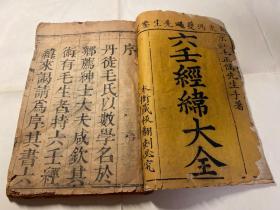 先生
六壬經緯大全
本衙藏板翻刻必究
序
丹徒毛氏以數學名於
鄉薦紳士大夫咸欽其
術有毛生者持六壬經
緯來謁請為序其書六